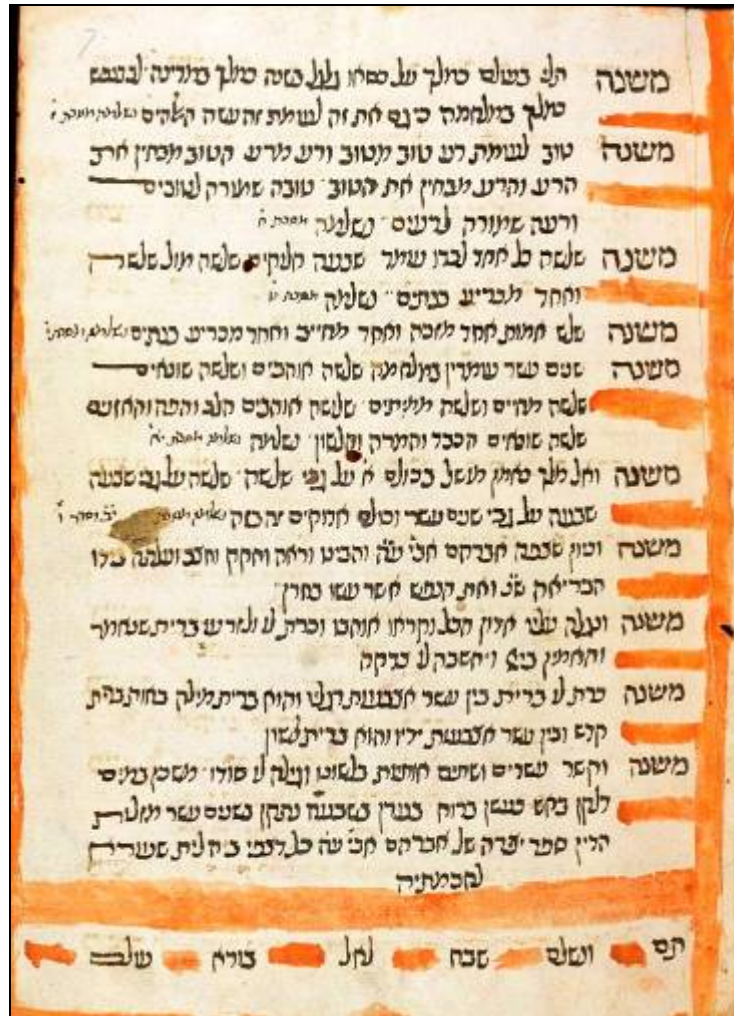 משנה תלי בעולם כמלך על כסאו גלגל בשנה כמלך במדינה לב בנפש
כמלך במלחמה גם את זה לעומת זה עשה האלהים
משנה טוב לעומת רע טוב מטוב ורע מרע הטוב מבחין את
הרע והרע מבחין את הטוב טובה שמורה לטובים
ורעה שמורה לרעים נשלמה
משנה שלשה כל אחד לבדו עומד שבעה חלוקים שלשה מול שלשה
ואחד מכריע בנתים נשלמה
משנה שלש אמות אחד מזכה ואחד מחייב ואחד מכריע בנתים
משנה שנים עשר עומדין במלחמה שלשה אוהבים ושלשה שונאים
שלשה מחיים ושלשה ממיתים שלשה אוהבים הלב והפה והאזנים
שלשה שונאים הכבד והמרה והלשון נשלמה
משנה ואל מלך נאמן מושל בכולם א על גבי שלשה שלשה על גבי שבעה
שבעה על גבי שנים עשר וכולם אדוקים זה בזה
משנה וכיון שצפה אברהם אבי׳ ע״ה והביט וראה וחקק וחצב ועלתה בידו
הבריאה שנ׳ ואת הנפש אשר עשו בחרן
משנה ונגלה עליו אדון הכל וקראו אוהבו וכרת לו ולזרעו ברית שנאמר
והאמין ביי ויחשבה לו צדקה
משנה כרת לו ברית בין עשר אצבעות רגליו והוא ברית מילה
קדש ובין עשר אצבעות ידיו והוא ברית לשון
משנה וקשר עשרים ושתים אותיות בלשונו וגילה לו סודו משכן במים
דלקן באש רעשן ברוח בערן בשבעה נהגן בשנים עשר מזלות
הדין ספר יצירה של אברהם אבי׳ ע״ה כל
לחכמתיה
תם ונשלם שבח לאל בורא עולם